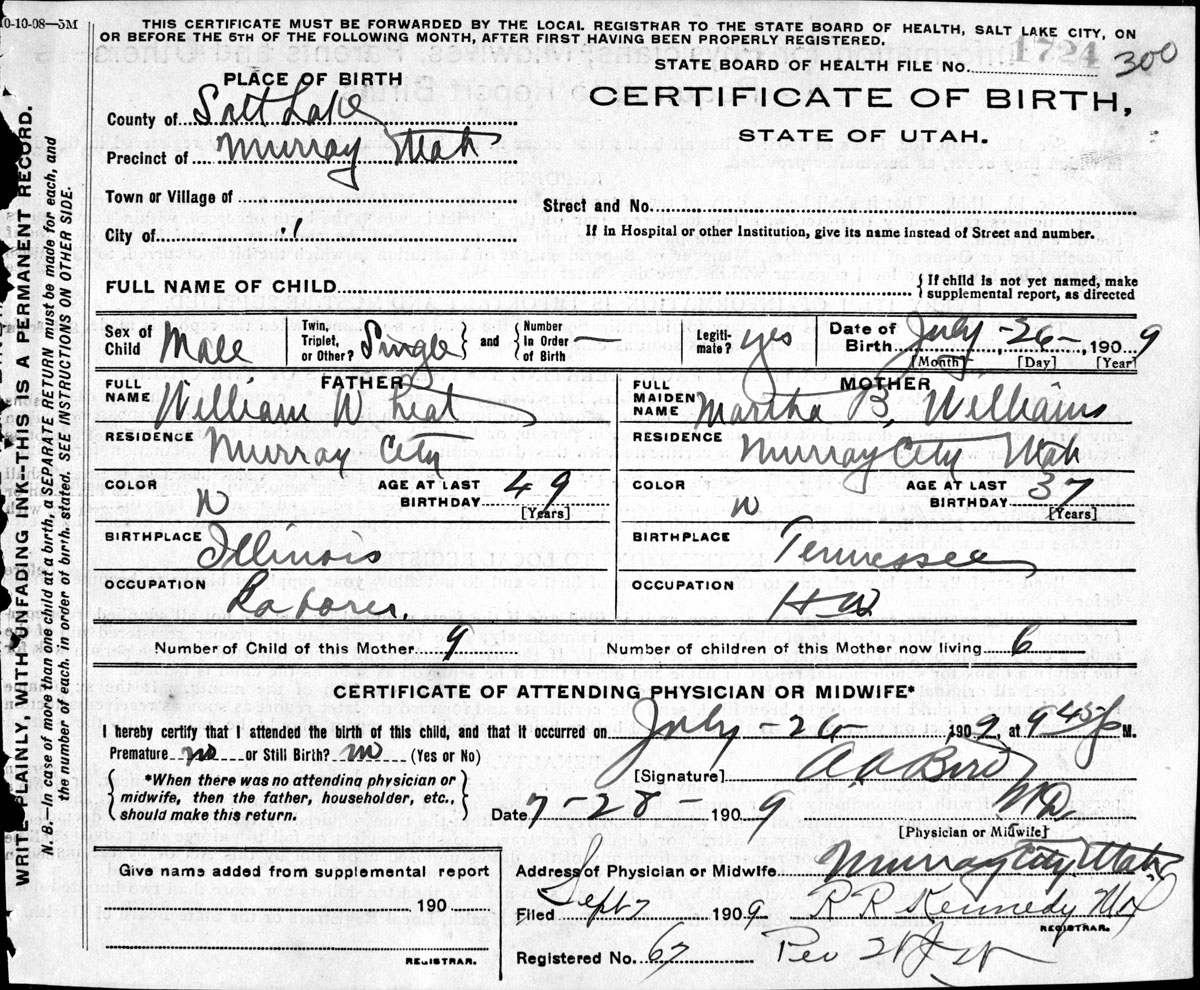 10-10-08—5M
THIS CERTIFICATE MUST BE FORWARDED BY THE LOCAL REGISTRAR TO THE STATE BOARD OF HEALTH, SALT LAKE CITY, ON
OR BEFORE THE 5TH OF THE FOLLOWING MONTH, AFTER FIRST HAVING BEEN PROPERLY REGISTERED.
STATE BOARD OF HEALTH FILE No. 1724 300
PLACE OF BIRTH
CERTIFICATE OF BIRTH,
STATE OF UTAH.
County of Salt Lake
Precinct of Murray Utah
Town or Village of
Street and No.
City of "
If in Hospital or other Institution, give its name instead of Street and number.
FULL NAME OF CHILD { If child is not yet named, make
supplemental report, as directed
Sex of Child Male
Twin, Triplet, or Other? Single } and { Number In Order of Birth —
Legitimate? yes
Date of Birth July - 26 -, 1909
[Month] [Day] [Year]
FATHER
FULL NAME William Wheat
RESIDENCE Murray City
COLOR W AGE AT LAST BIRTHDAY 49
[Years]
BIRTHPLACE Illinois
OCCUPATION Laborer.
MOTHER
FULL MAIDEN NAME Martha B, Williams
RESIDENCE Murray City Utah
COLOR W AGE AT LAST BIRTHDAY 37
[Years]
BIRTHPLACE Tennessee
OCCUPATION HW
Number of Child of this Mother 9 Number of children of this Mother now living 6
CERTIFICATE OF ATTENDING PHYSICIAN OR MIDWIFE*
I hereby certify that I attended the birth of this child, and that it occurred on July - 26 - 1909, at 9 45 P M.
Premature no or Still Birth? no (Yes or No)
*When there was no attending physician or
midwife, then the father, householder, etc.,
should make this return.
[Signature] A A Bird
Date 7 - 28 - 1909 M.D.
[Physician or Midwife]
Give name added from supplemental report
190
REGISTRAR.
Address of Physician or Midwife Murray City Utah
Filed Sept 7 1909 R R Kennedy
REGISTRAR.
Registered No. 67
WRITE PLAINLY, WITH UNFADING INK-THIS IS A PERMANENT RECORD.
N. B.—In case of more than one child at a birth, a SEPARATE RETURN must be made for each, and
the number of each, in order of birth, stated. SEE INSTRUCTIONS ON OTHER SIDE.